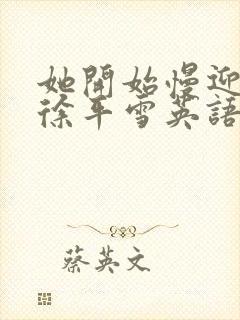 她開始慢迎
徐年雪英語
蔡英文